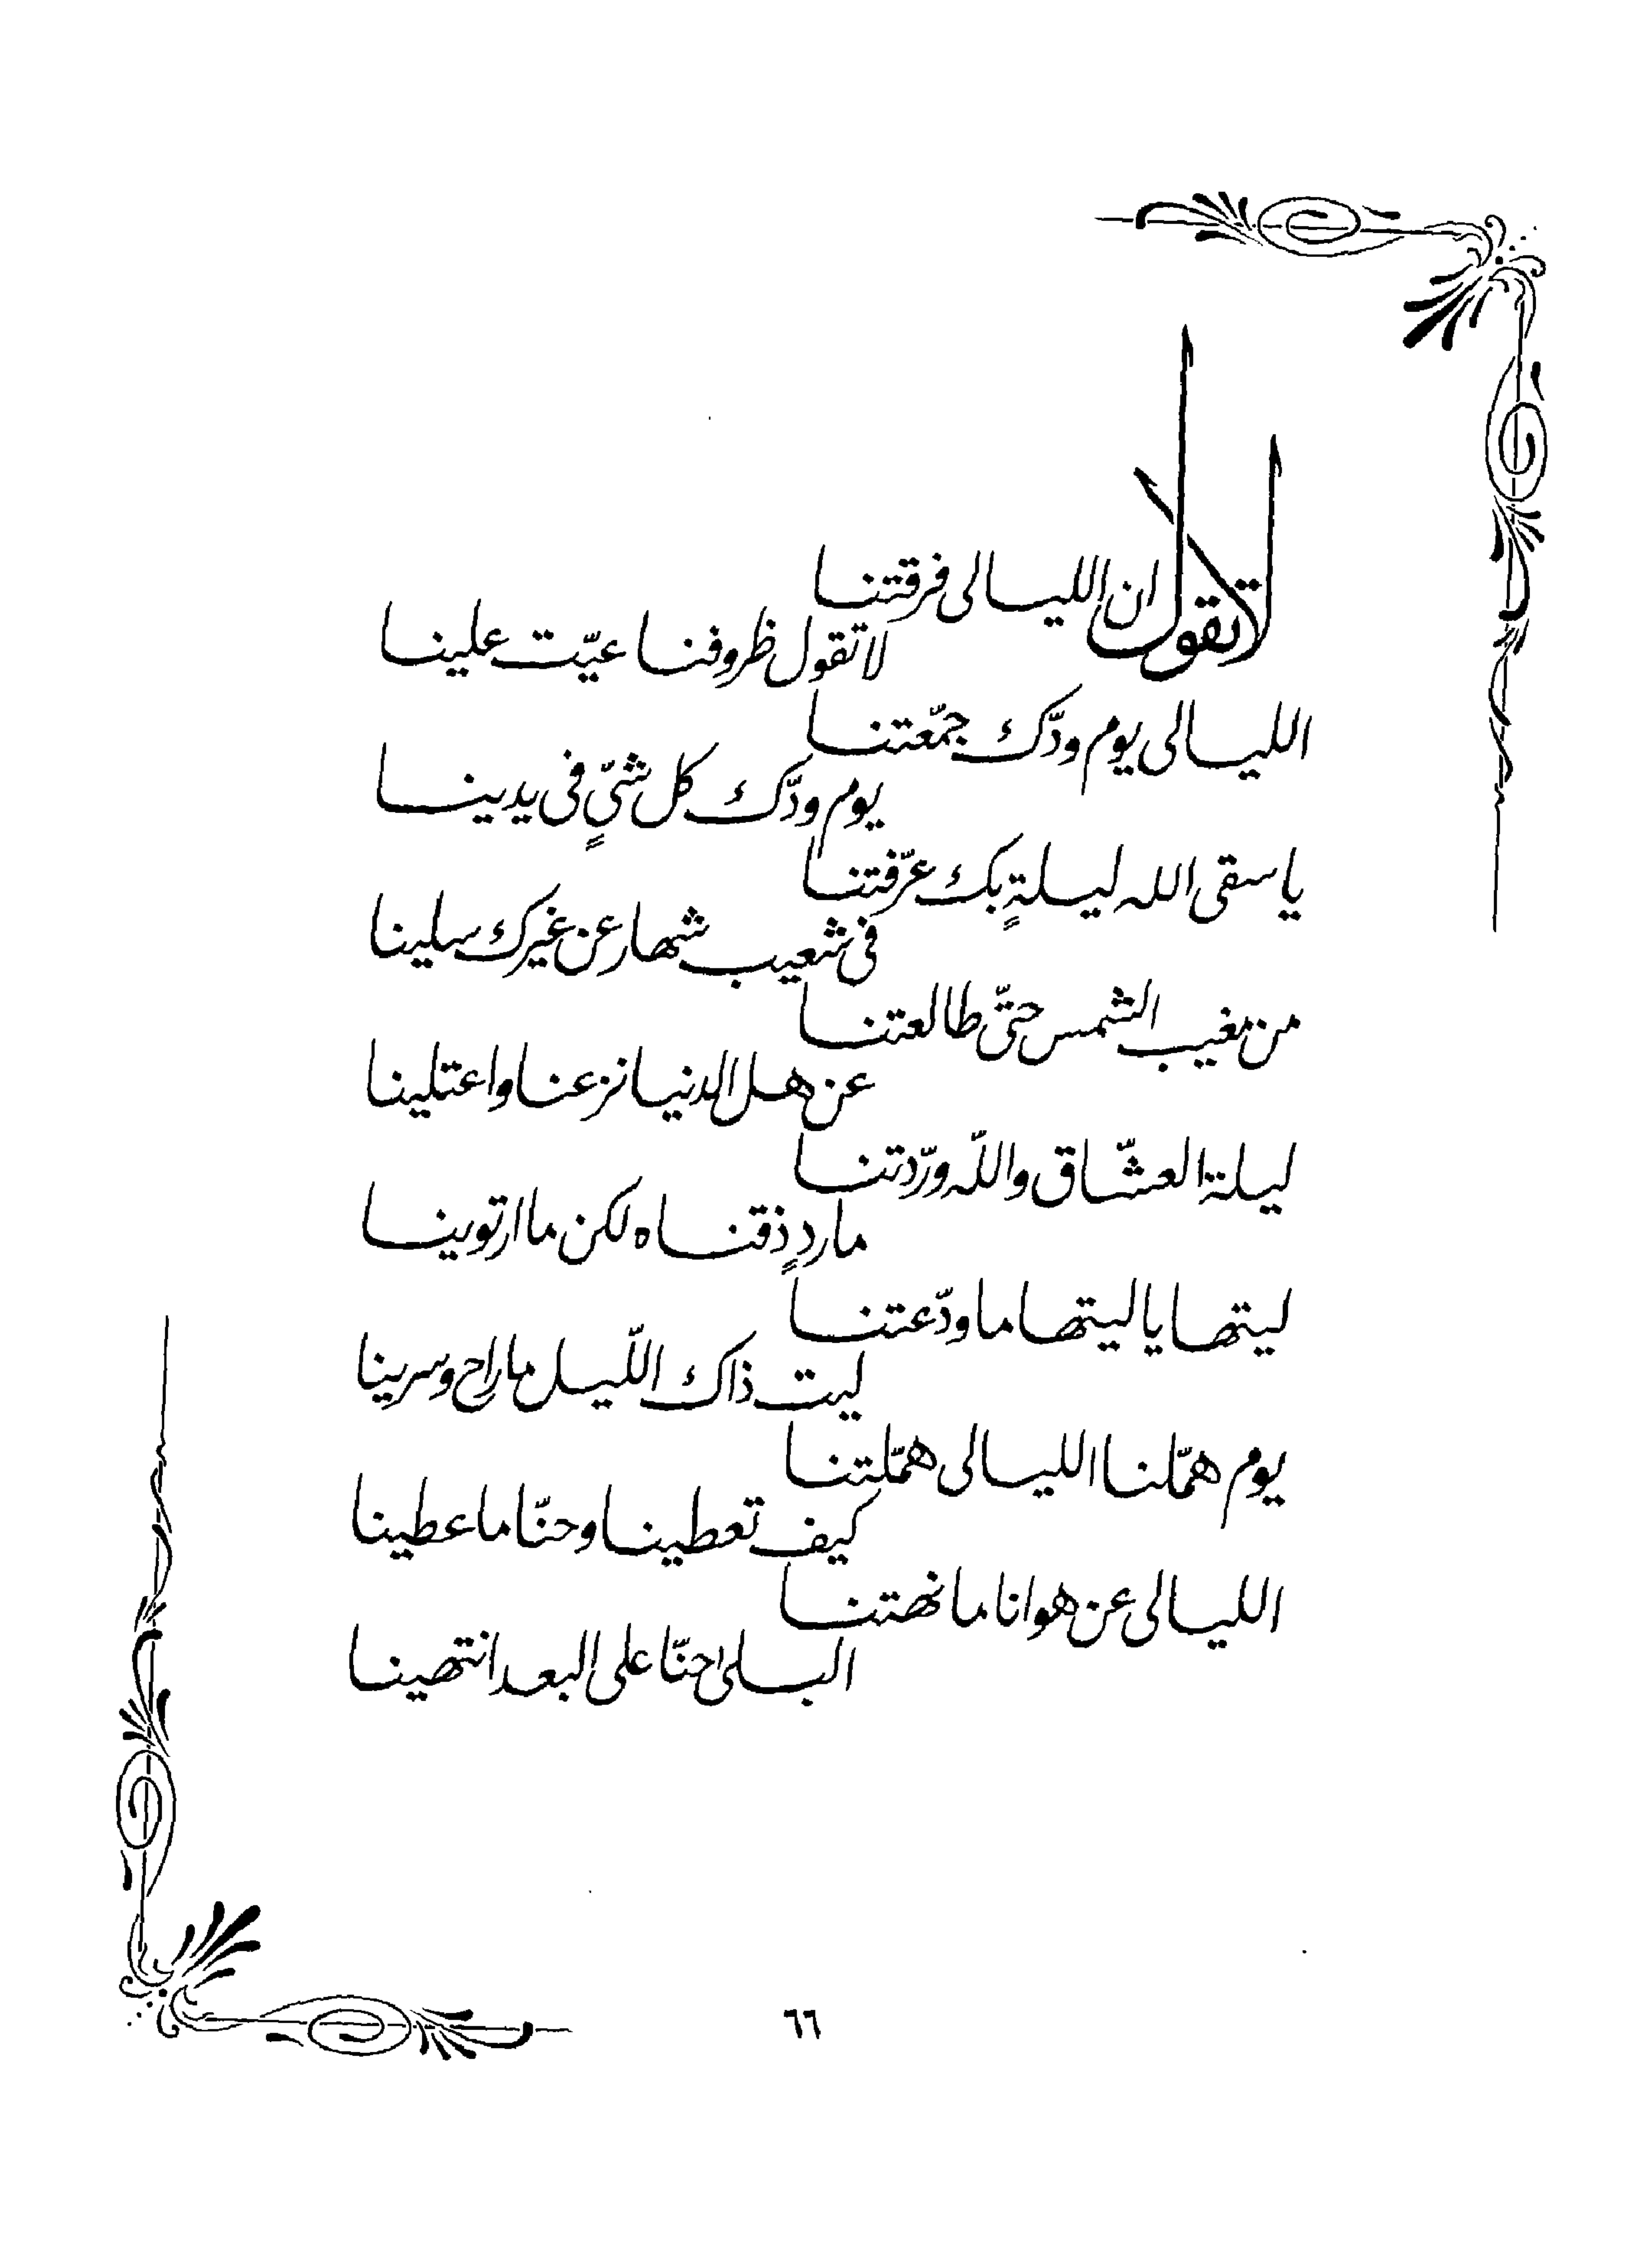 لا تقول ان الليالى فرقتنا
لا تقول ظروفنا عيّت علينا
الليالى يوم ودّك جمّعتنا
يوم ودّك كل شيٍّ فى يدينا
يا سقى الله ليلةٍ بك عرّفتنا
فى شعيب شهار عن غيرك سلينا
من مغيب الشمس حتّى طالعتنا
عن هل الدنيا نزعنا واعتلينا
ليلة العشّاق واللّه ورّدتنا
ماردٍ ذقناه لكن ما ارتوينا
ليتها ياليتها ما ودّعتنا
ليت ذاك اللّيل ما راح وسرينا
يوم همّلنا الليالى همّلتنا
كيف تعطينا وحنّا ما عطينا
الليالى عن هوانا ما نهتنا
البلى احنّا على البعد انتهينا
٦٦